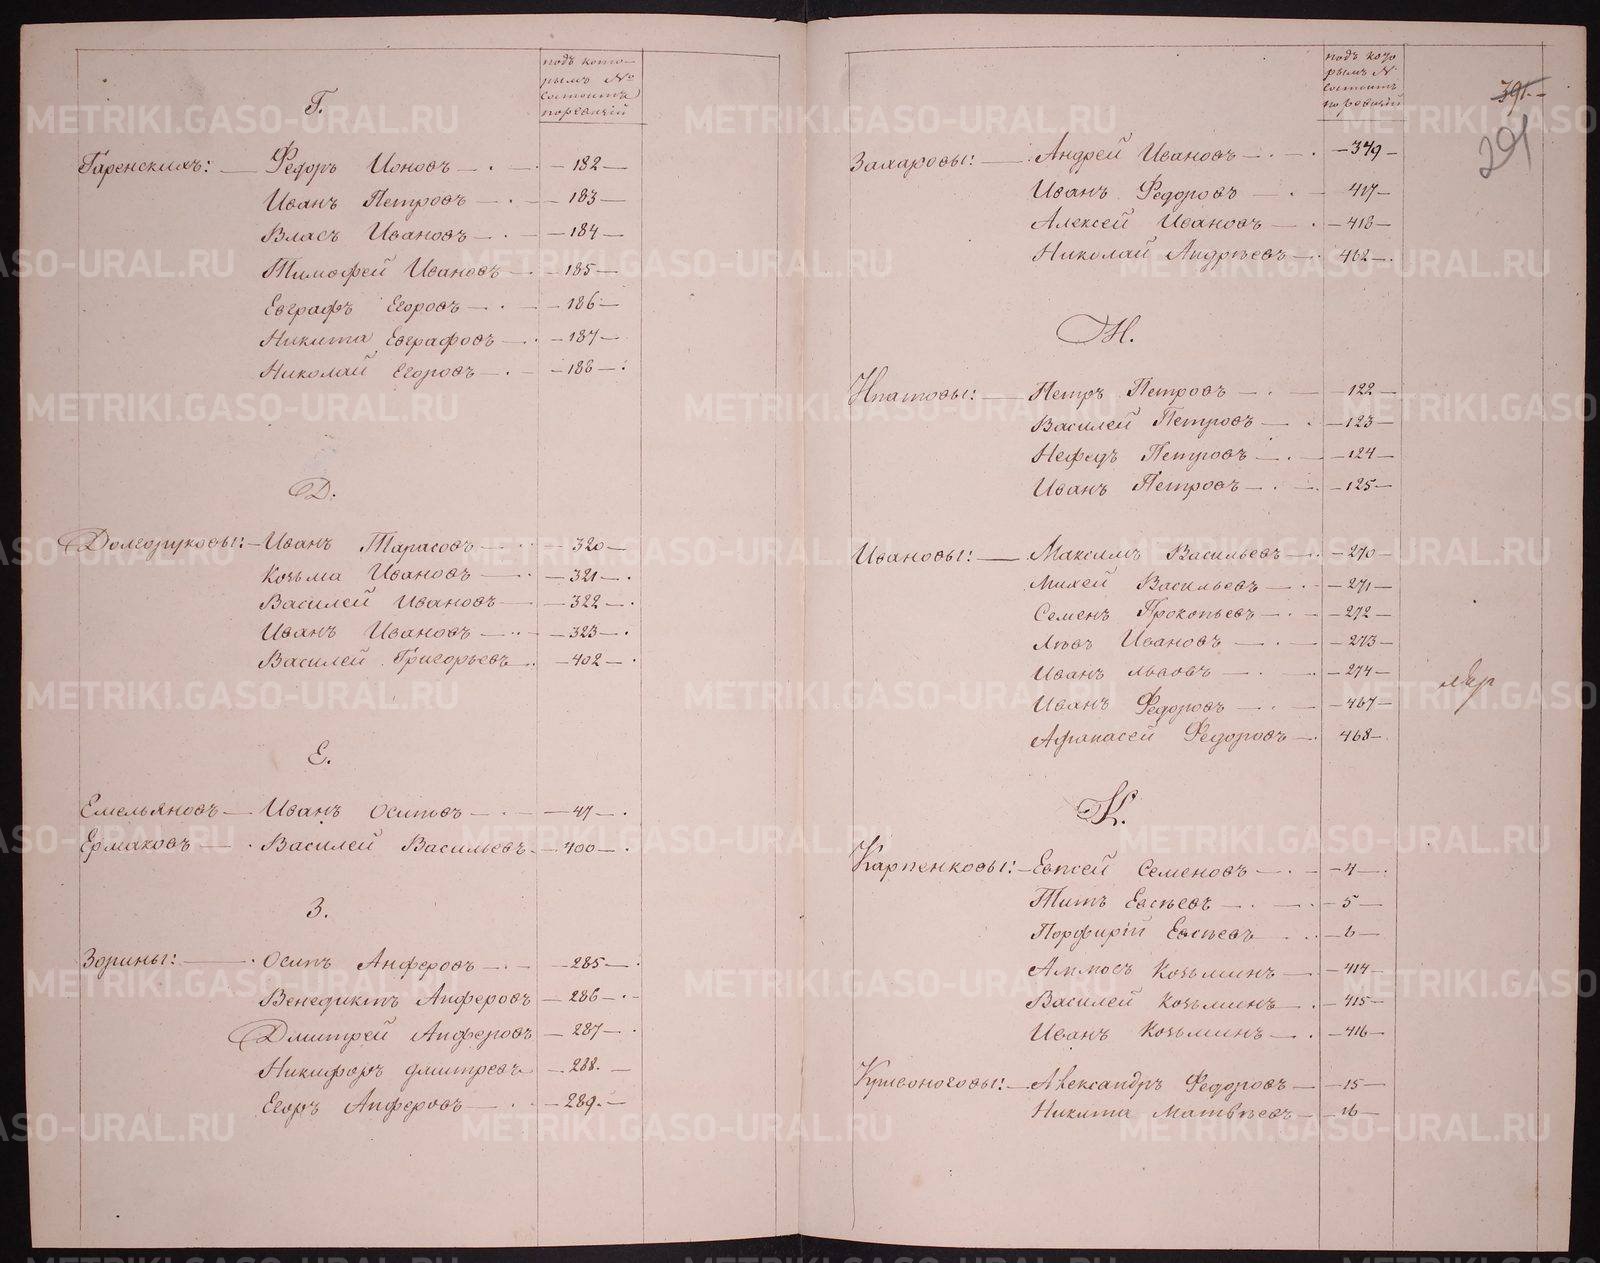 подъ кото-
рымъ №
состоитъ
по ревизiи
Г.
Гаренскихъ: — Федоръ Iоновъ — . — 182 —
Иванъ Петровъ — . — 183 —
Власъ Ивановъ — . — 184 —
Тимофей Ивановъ — 185 —
Евграфъ Егоровъ — . — 186 —
Никита Евграфовъ — . — 187 —
Николай Егоровъ — . — 188 — .
Д.
Долгоруковы: — Иванъ Тарасовъ — 320 —
Козьма Ивановъ — 321 — .
Василей Ивановъ — 322 — .
Иванъ Ивановъ — 323 — .
Василей Григорьевъ — 402 — .
Е.
Емельяновъ — Иванъ Осиповъ — . — 47 — .
Ермаковъ — . Василей Васильевъ — 400 — .
З.
Зорины: — . Осипъ Анферовъ — . — 285 — .
Венедиктъ Анферовъ — 286 — . -
Дмитрей Анферовъ — 287 — .
Никифоръ Дмитревъ — 288. —
Егоръ Анферовъ — . — 289. —
подъ кото
рымъ №
состоитъ
по ревизiи
391.-
291
Захаровы: — . Андрей Ивановъ — . — . — 379 —
Иванъ Федоровъ — . — 417 —
Алексей Ивановъ — . — 418 —
Николай Андрѣевъ — . 462 — .
И.
Ипатовы: — Петръ Петровъ — . — 122 —
Василей Петровъ — . — 123 —
Нефедъ Петровъ — . — 124 —
Иванъ Петровъ — . — 125 —
Ивановы: — Максимъ Васильевъ — . — 270 —
Михей Васильевъ — . — 271 —
Семенъ Прокопьевъ — . — 272 —
Львъ Ивановъ — . — 273 —
Иванъ Львовъ — . — 274 —
Иванъ Федоровъ — . — 467 —
Афанасей Федоровъ — . 468 — .
К.
Карпенковы: — Евсей Семеновъ — . — 4 — .
Титъ Евсѣевъ — . — . — 5 —
Порфирiй Евсѣевъ . . — 6 —
Аммосъ Козьминъ — . — 414 —
Василей Козьминъ — . — 415 —
Иванъ Козьминъ — . — 416 —
Кривоноговы: — Александръ Федоровъ — 15 —
Никита Матвѣевъ — 16 —
METRIKI.GASO-URAL.RU